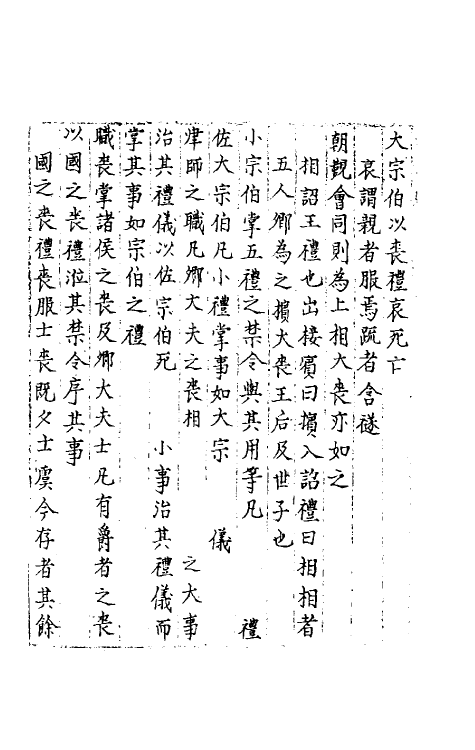 大宗伯以喪禮哀死亡
哀謂親者服焉疏者含襚
朝覲會同則為上相大喪亦如之
相詔王禮也出接賓曰擯入詔禮曰相相者
五人卿為之擯大喪王后及世子也
小宗伯掌五禮之禁令與其用等凡 禮
佐大宗伯凡小禮掌事如大宗 儀
肆師之職凡卿大夫之喪相 之大事
治其禮儀以佐宗伯死 小事治其禮儀而
掌其事如宗伯之禮
職喪掌諸侯之喪及卿大夫士凡有爵者之喪
以國之喪禮涖其禁令序其事
國之喪禮喪服士喪既夕士虞今存者其餘